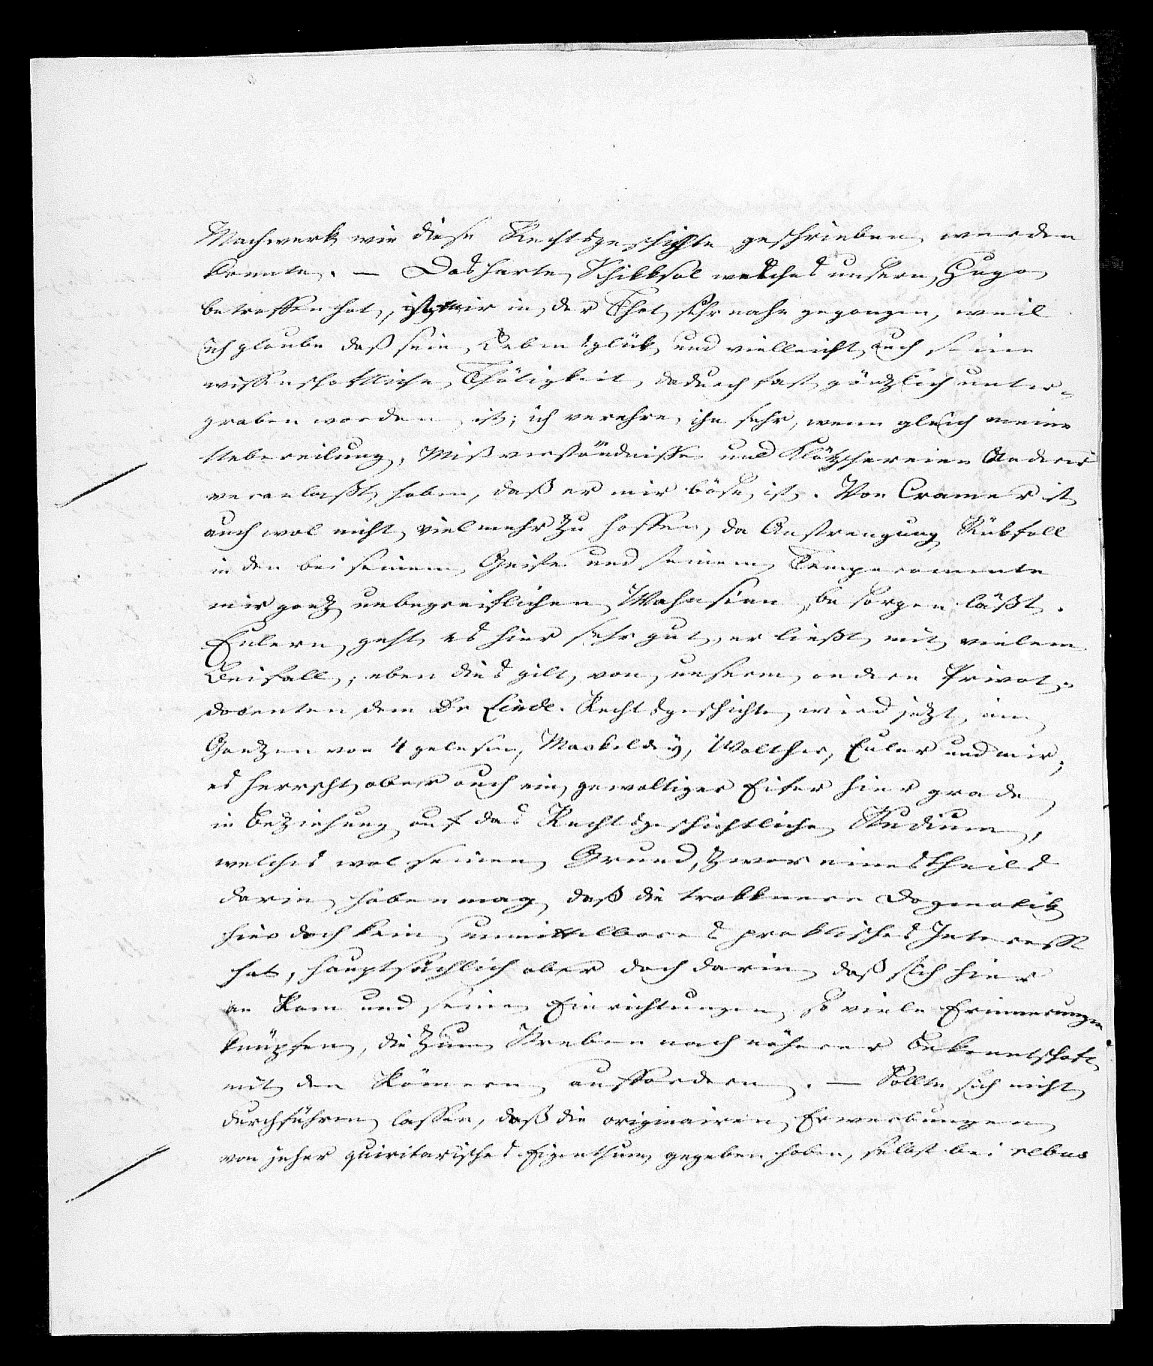 Machwerk wie diese Rechtsgeschichte geschrieben werden
konnte. — Das harte Schikksal welches unsern Hugo
betroffen hat, ist mir in der That sehr nahe gegangen, weil
ich glaube daß sein Lebensglük und vielleicht auch seine
wissenschaftliche Thätigkeit, dadurch fast gänzlich unter-
graben worden ist; ich verehre ihn sehr, wenn gleich meine
Uebereilung, Mißverständnisse und Klätschereien Anderer
veranlaßt haben, daß er mir böse ist. Von Cramer ist
auch wol nicht viel mehr zu hoffen, da Anstrengung Rükfall
in den bei seinem Geiste und seinem Temperamente
mir ganz unbegreiflichen Wahnsinn besorgen läßt.
Eulern geht es hier sehr gut, er ließt mit vielem
Beifall; eben dies gilt von unserm andern Privat-
docenten dem Dr Linde. Rechtsgeschichte wird jetzt im
Ganzen von 4 gelesen, Mackeldey, Walther, Euler und mir;
es herrscht aber auch ein gewaltiger Eifer hier grade
in Beziehung auf das Rechtsgeschichtliche Studium,
welches wol seinen Grund, zwar einestheils
darin haben mag, daß die trokknere Dogmatik
hier doch kein unmittelbares praktisches Interesse
hat, hauptsächlich aber doch darin daß sich hier
an Rom und seine Einrichtungen so viele Erinnerungen
knüpfen, die zum Streben nach näherer Bekanntschaft
mit den Römern auffordern. — Sollte sich nicht
durchführen lassen, daß die originairen Erwerbungen
von jeher quiritarisches Eigenthum gegeben haben, selbst bei rebus